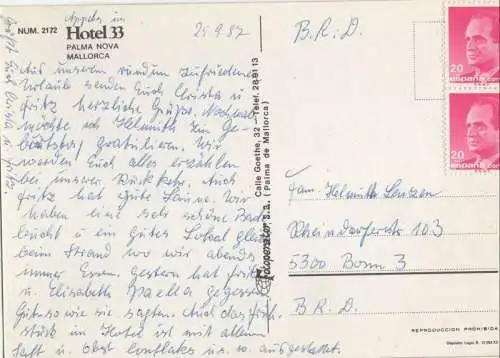 NUM. 2172
Appt. im
Hotel 33
PALMA NOVA
MALLORCA
25.9.87
Aus unserem rundum zufriedenen
Urlaub senden Euch Christa u
Fritz herzliche Grüße. Nochmal
möchte ich Helmuth zum Ge-
burtstag gratulieren. Wir
werden Euch alles erzählen
bei unserer Rückkehr. Auch
Fritz hat gute Laune. Wir
haben eine sehr schöne Bade
bucht u ein gutes Lokal gleich
beim Strand wo wir abends
immer Essen. Gestern hat Fritz
u. Elisabeth Paella gegessen
Gut so wie sie sagten. Auch das Früh-
stück im Hotel ist mit allem
Saft u. Obst Cornflakes u.s.w. ausgestattet.
Eure Christa u. Fritz.
Fotoperator s.a.
Calle Goethe, 32 - Telef. 28 91 13
(Palma de Mallorca)
B.R.D.
20
ESPAÑA
20
ESPAÑA
Fam. Helmuth
Rheindorferstr 103
5300 Bonn 3
B R D.
REPRODUCCION PROHIBIDA